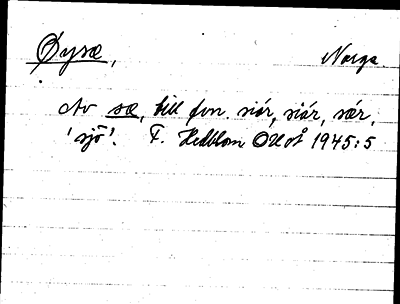 Øysæ, Norge
Av sæ, till fvn. siór, siár, sær,
'sjö'. F. Hedblom OUoÅ 1945:5